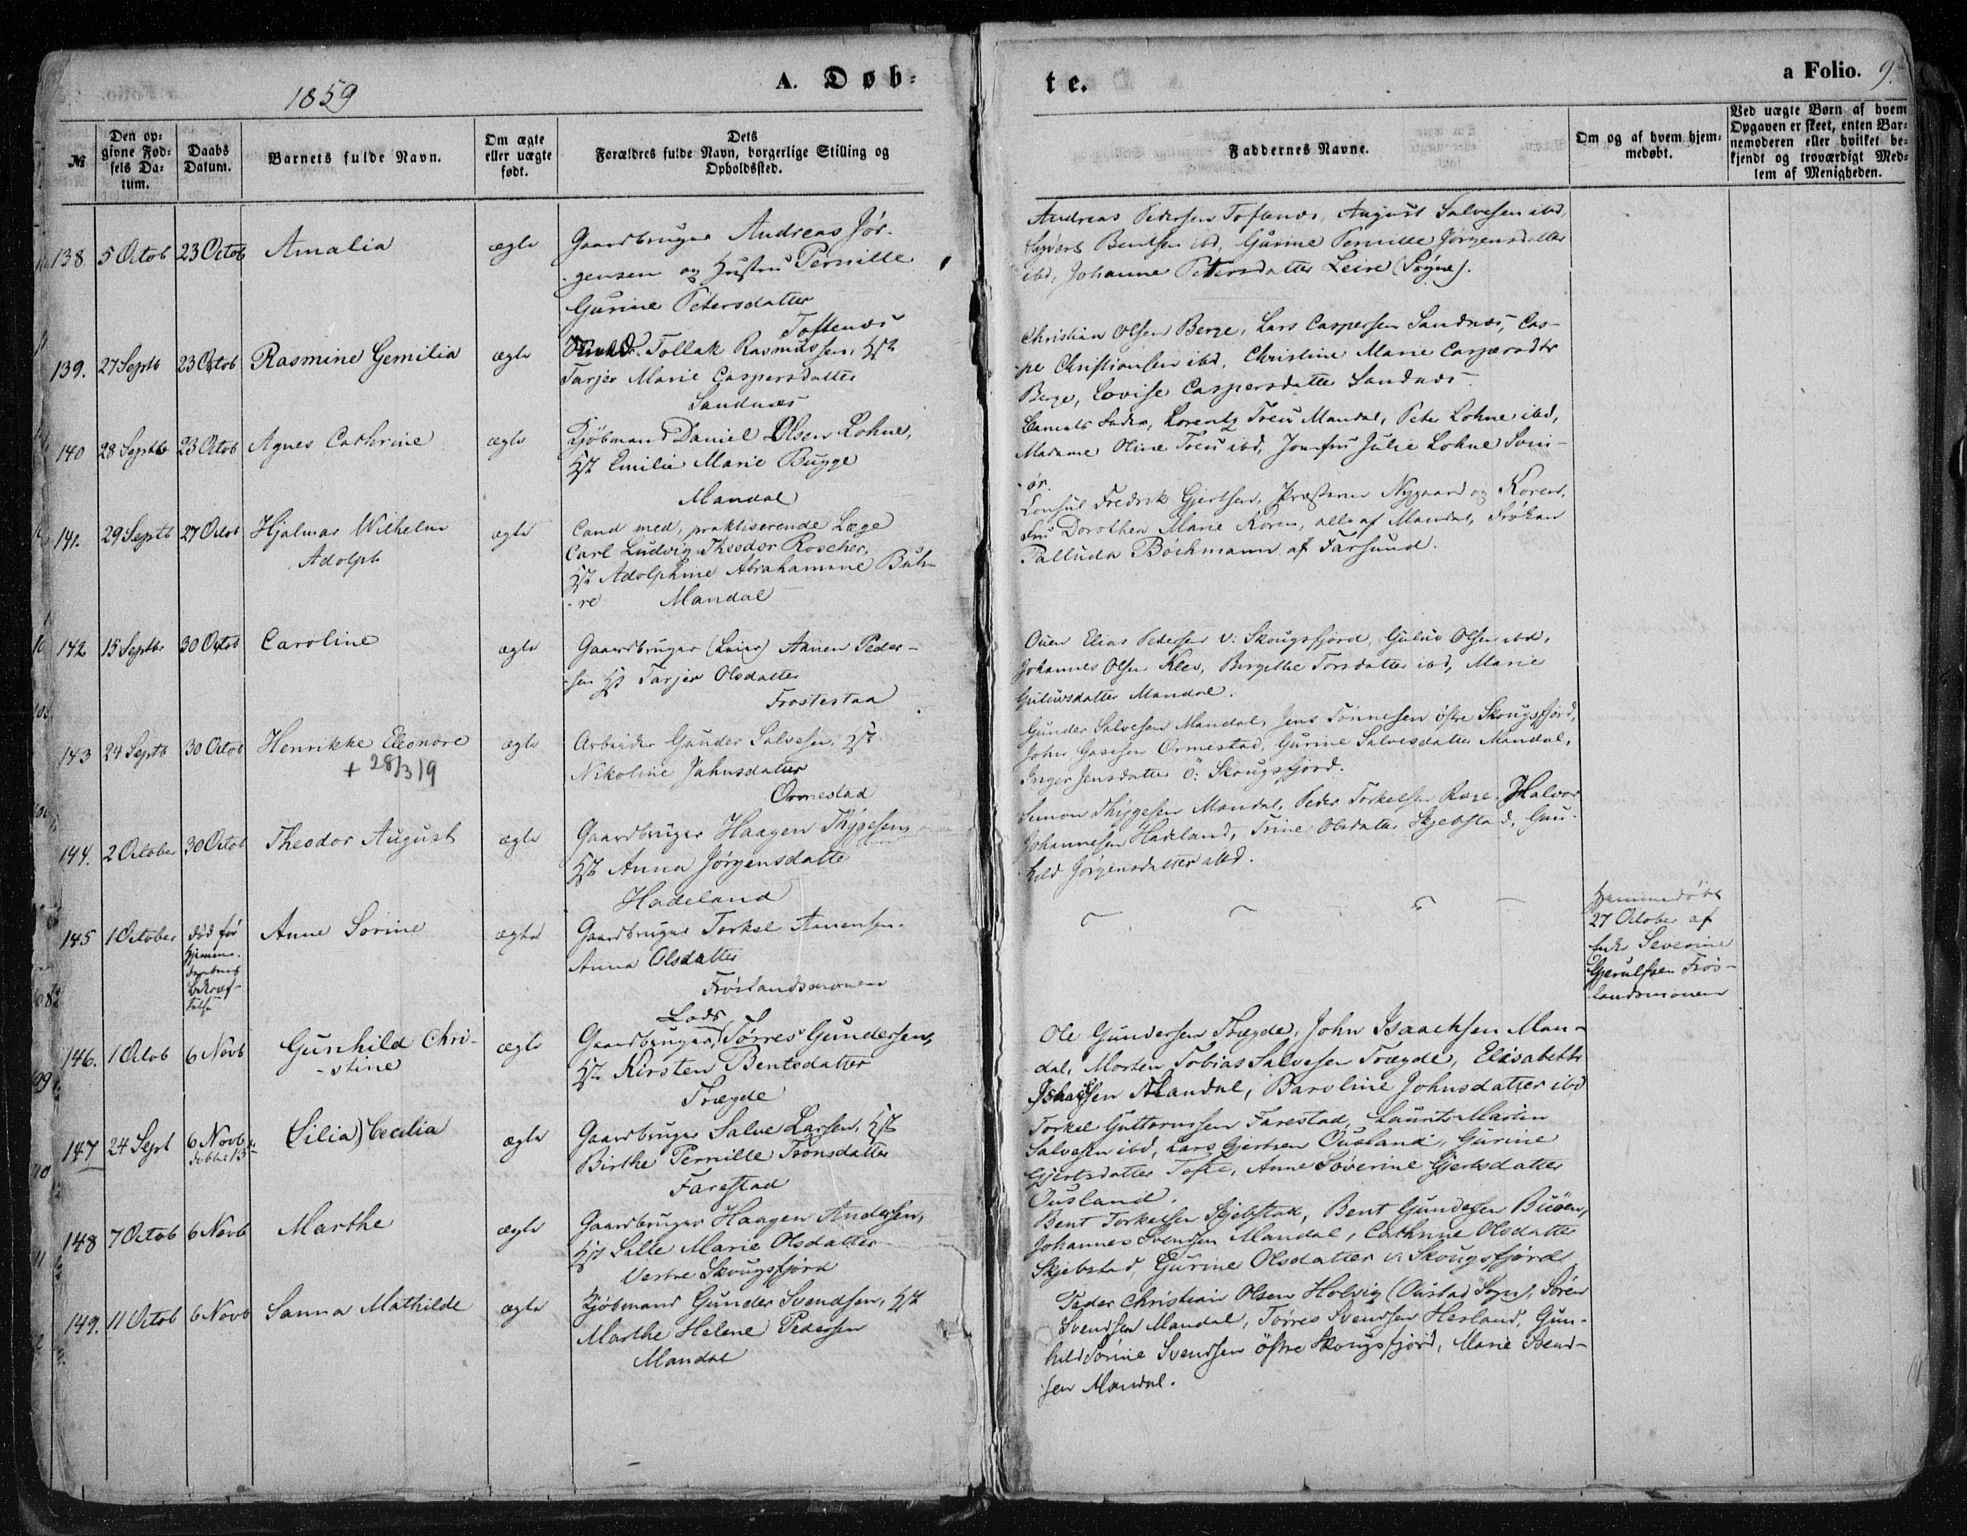 1859
A. Døb=
te.
a Folio. 9.
№
Den op=
givne Fød=
sels Da=
tum.
Daabs
Datum.
Barnets fulde Navn.
Om ægte
eller uægte
født.
Dets
Forældres fulde Navn, borgerlige Stilling og
Opholdssted.
Faddernes Navne.
Om og af hvem hjem=
medøbt.
Ved uægte Børn af hvem
Opgaven er skeet, enten Bar=
nemoderen eller hvilket be=
kjendt og troværdigt Med=
lem af Menigheden.
138 5 Octob 23 Octob Amalia ægte
Gaardbruger Andreas Jør-
gensen og Hustru Pernille
Gurine Petersdatter
Toftenæs
Andreas Pedersen Toftenæs, August Salvesen ibd,
Bentsen ibd, Gurine Pernille Jørgensdatter
ibd, Johanne Petersdatter Leire (Søgne).
139. 27 Septb 23 Octob Rasmine Gemilia ægte
Tollak Rasmussen, Hst
Tarjer Marie Caspersdatter
Sandnæs
Christian Olsen Berge, Lars Caspersen Sandnæs, Cas-
pe Christiansen ibd, Christine Marie
Berge, Lovise Caspersdatter Sandnæs
140 28 Septb 23 Octob Agnes Cathrine ægte
Kjøbmand Daniel Olsen Lohne,
Hst Emilie Marie Bugge
Mandal
Barnets Fader, Lorentz Mandal, Peter Lohne ibd,
Madame Oline ibd, Jomfru Julie Lohne Svin-
ør.
141. 29 Septb 27 Octob Hjalmar Wilhelm
Adolph ægte
Cand med, praktiserende Læge
Carl Ludvig Theodor Roscher,
Hst Adolphine Abrahamine Buh-
re Mandal
Consul Fredrik Gjertsen, Præsterne Nygaard og Koren,
Fru Dorothea Marie Koren, alle af Mandal, Frøken
Palluda Bochmann af Farsund.
142 15 Septb 30 Octob Caroline ægte
Gaardbruger (Leier) Aanen Peder-
sen Hst Tarjer Olsdatter
Frostestaa
Ouen Elias Pedersen v: Skougsfjord, Guluv Olsen ibd,
Johannes Olsen Klev, Bergithe Torsdatter ibd, Marie
Guluvsdatter Mandal.
143 24 Septb 30 Octob Henrikke Eleonore
+ 28/3 19 ægte
Arbeider Gunder Salvesen, Hst
Nikoline Jahnsdatter
Ormestad
Gunder Salvesen Mandal, Jens Tønnesen østre Skougsfjord,
John Ormestad, Gurine Salvesdatter Mandal,
Inger Jensdatter ö: Skougsfjord.
144. 2 October 30 Octob Theodor August ægte
Gaardbruger Haagen Thygesen,
Hst Anna Jørgensdatter
Hadeland
Simon Thygesen Mandal, Peder Torkelsen Halvor
Johannesen Hadeland, Trine Olsdatter Skjebstad, Gun-
hild Jørgensdatter ibd.
145 1 October død før
Hjemme-
daabens
Bekræf-
telse Anne Sorine ægte
Gaardbruger Torkel Aanensen,
Anna Olsdatter
Frøslandsmonen
Hjemmedøbt
27 October af
Enke Severine
Gjerulfsen Frøs-
landsmonen
146. 1 Octob 6 Novb Gunhild Chri-
stine ægte
Lods
Gaardbruger, Tørres Gundersen,
Hst Kirsten Bentsdatter
Trægde
Ole Gundersen Trægde, John Isaachsen Man-
dal, Morten Tobias Salvesen Trægde, Elisabeth
Ishachsen Mandal, Baroline Johnsdatter ibd
147 24 Sept 6 Novb
(Silia) Cecilia ægte
Gaardbruger Salve Larsen, Hst
Birthe Pernille Tronsdatter
Farestad
Torkel Guttormsen Farestad, Laurits Martin
Salvesen ibd, Lars Gjertsen Ousland, Gurine
Gjertsdatter Tofte, Anne Severine Gjertsdatter
Ousland.
148 7 Octob 6 Novb Marthe ægte
Gaardbruger Haagen Andersen,
Hst Sille Marie Olsdatter
Vestre Skougsfjord
Bent Torkelsen Skjebstad, Bent Gundersen Buøen,
Johannes Svendsen Mandal, Cathrine Olsdatter
Skjebstad, Gurine Olsdatter v: Skougsfjord
149. 11 Octob 6 Novb Sanna Mathilde ægte
Kjøbmand Gunder Svendsen, Hst
Marthe Helene Pedersen
Mandal
Peder Christian Olsen Holvig (Oustad Sogn), Søren
Svendsen Mandal, Tørres Svendsen Hesland, Gun-
hild Sørine Svendsen østre Skougsfjord, Marie Svend-
sen Mandal.